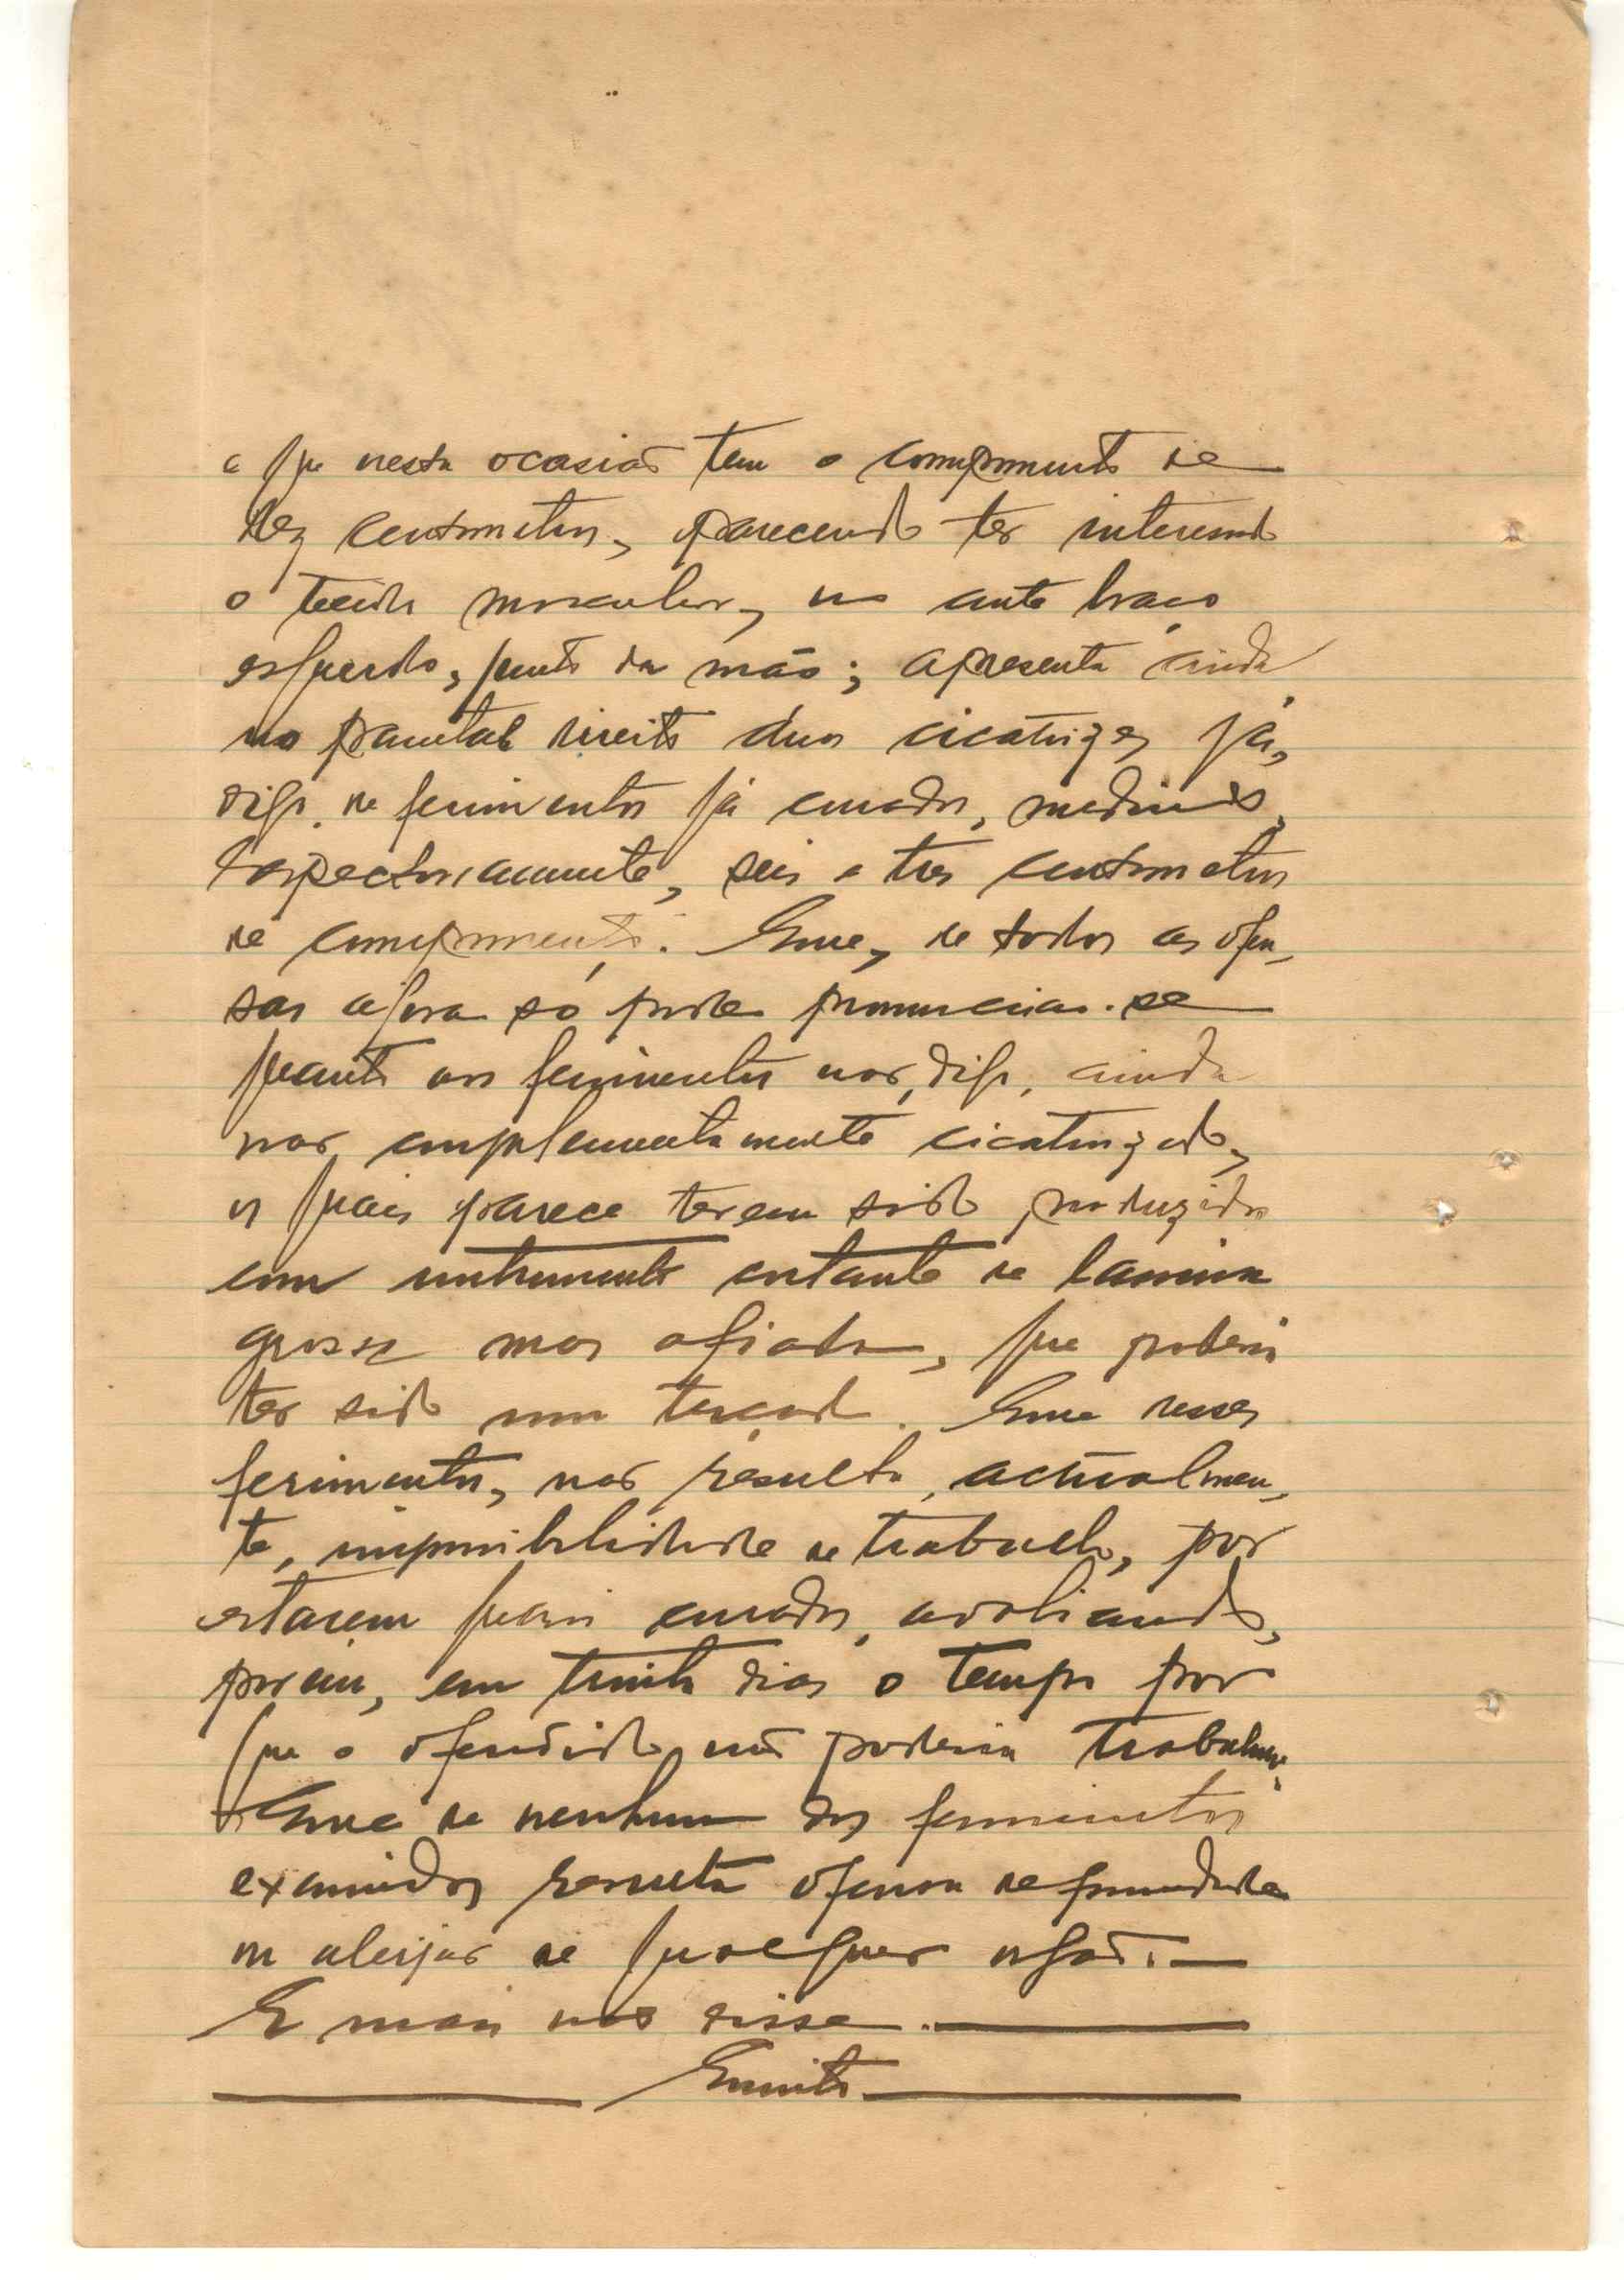 e que nesta ocasião tem o comprimento de
dez centimetros, parecendo ter interessado
o tecido muscular, no ante braço
esquerdo, junto da mão; apresenta ainda
no parietal direito duas cicatrizes já,
digo, de ferimentos já curados, medindo,
respectivamente, seis e tres centimetros
de comprimento. Que, de todas as ofen-
sas agora só pode pronunciar-se
quanto aos ferimentos não, digo, ainda
não completamente cicatrizados,
os quais parece terem sido produzidos
com instrumento cortante de lamina
grossa mas afiada, que poderia
ter sido um terçado. Que desses
ferimentos, não resulta, actualmen-
te, impossibilidade de trabalho, por
estarem quasi curados, avaliando,
porem, em trinta dias o tempo por
que o ofendido não poderia trabalhar.
Que de nenhum dos ferimentos
examinados resulta ofensa de
ou aleijão de qualquer orgão. —
E mais não disse. —